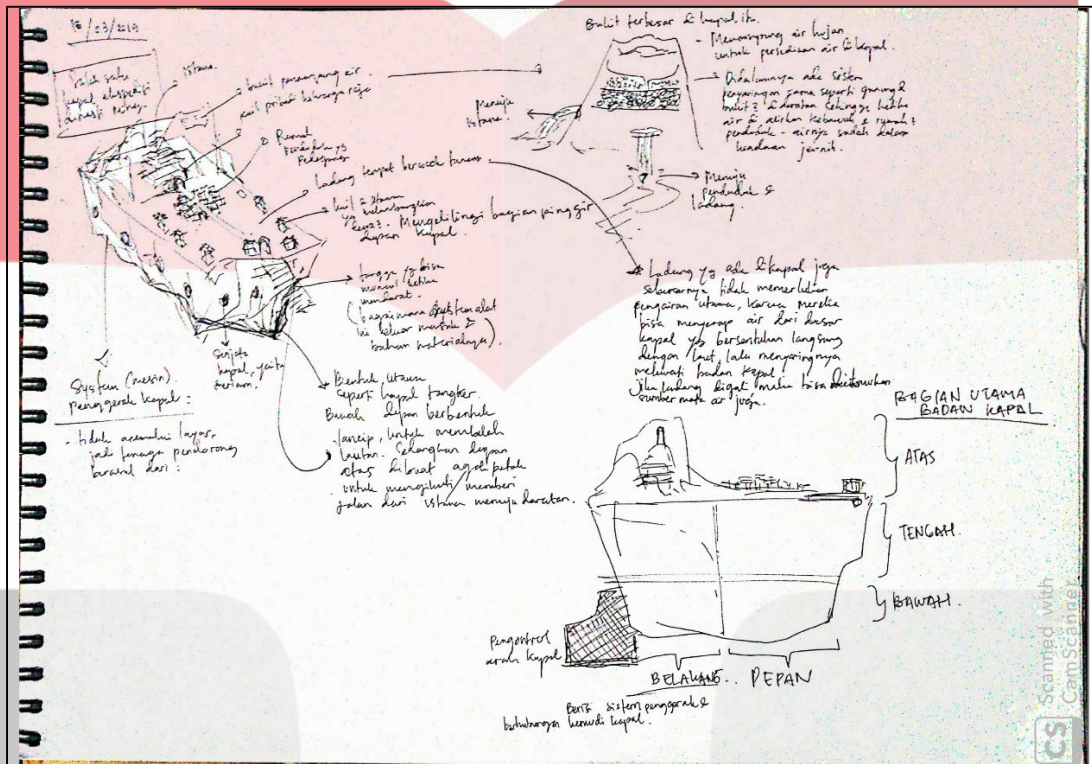 18/03/2019
Salah satu
kapal ekspedisi
istana.
bukit penampung air.
kuil pribadi keluarga raja
Rumah
penduduk yg
ladang tempat bercocok tanam
kuil & utama
yg melambangkan
dewa2. Mengelilingi bagian pinggir
depan kapal.
tangga yg bisa
muncul ketika
mendarat.
(bagaimana sistem alat
ini keluar masuk &
bahan materialnya).
Senjata
kapal, yaitu
meriam.
System (mesin)
penggerak kapal:
- tidak memakai layar,
jadi tenaga pendorong
berasal dari:
Bentuk utama
seperti kapal tangker.
Bawah depan berbentuk
lancip, untuk membelah
lautan. Sedangkan depan
atas dibuat agak patah
untuk mengikuti/memberi
jalan dari istana menuju daratan.
Bukit terbesar di kapal itu.
- Menampung air hujan
untuk persediaan air di kapal.
Didalamnya ada sistem
penyaringan sama seperti gunung &
bukit2 di daratan sehingga ketika
air di alirkan kebawah & rumah2
penduduk - airnya sudah dalam
keadaan jernih.
Menuju
istana.
Menuju
penduduk &
ladang.
* Ladang yg ada di kapal juga
sebenarnya tidak memerlukan
pengairan utama, karena mereka
bisa menyerap air dari dasar
kapal yg bersentuhan langsung
dengan laut, lalu menyaringnya
melewati badan kapal.
Jika ladang digali maka bisa
sumber mata air juga.
BAGIAN UTAMA
BADAN KAPAL
ATAS
TENGAH.
BAWAH.
Pengontrol
arah kapal
BELAKANG.. DEPAN
Berisi sistem penggerak &
berhubungan kemudi kapal.
Scanned with
CamScanner
CS